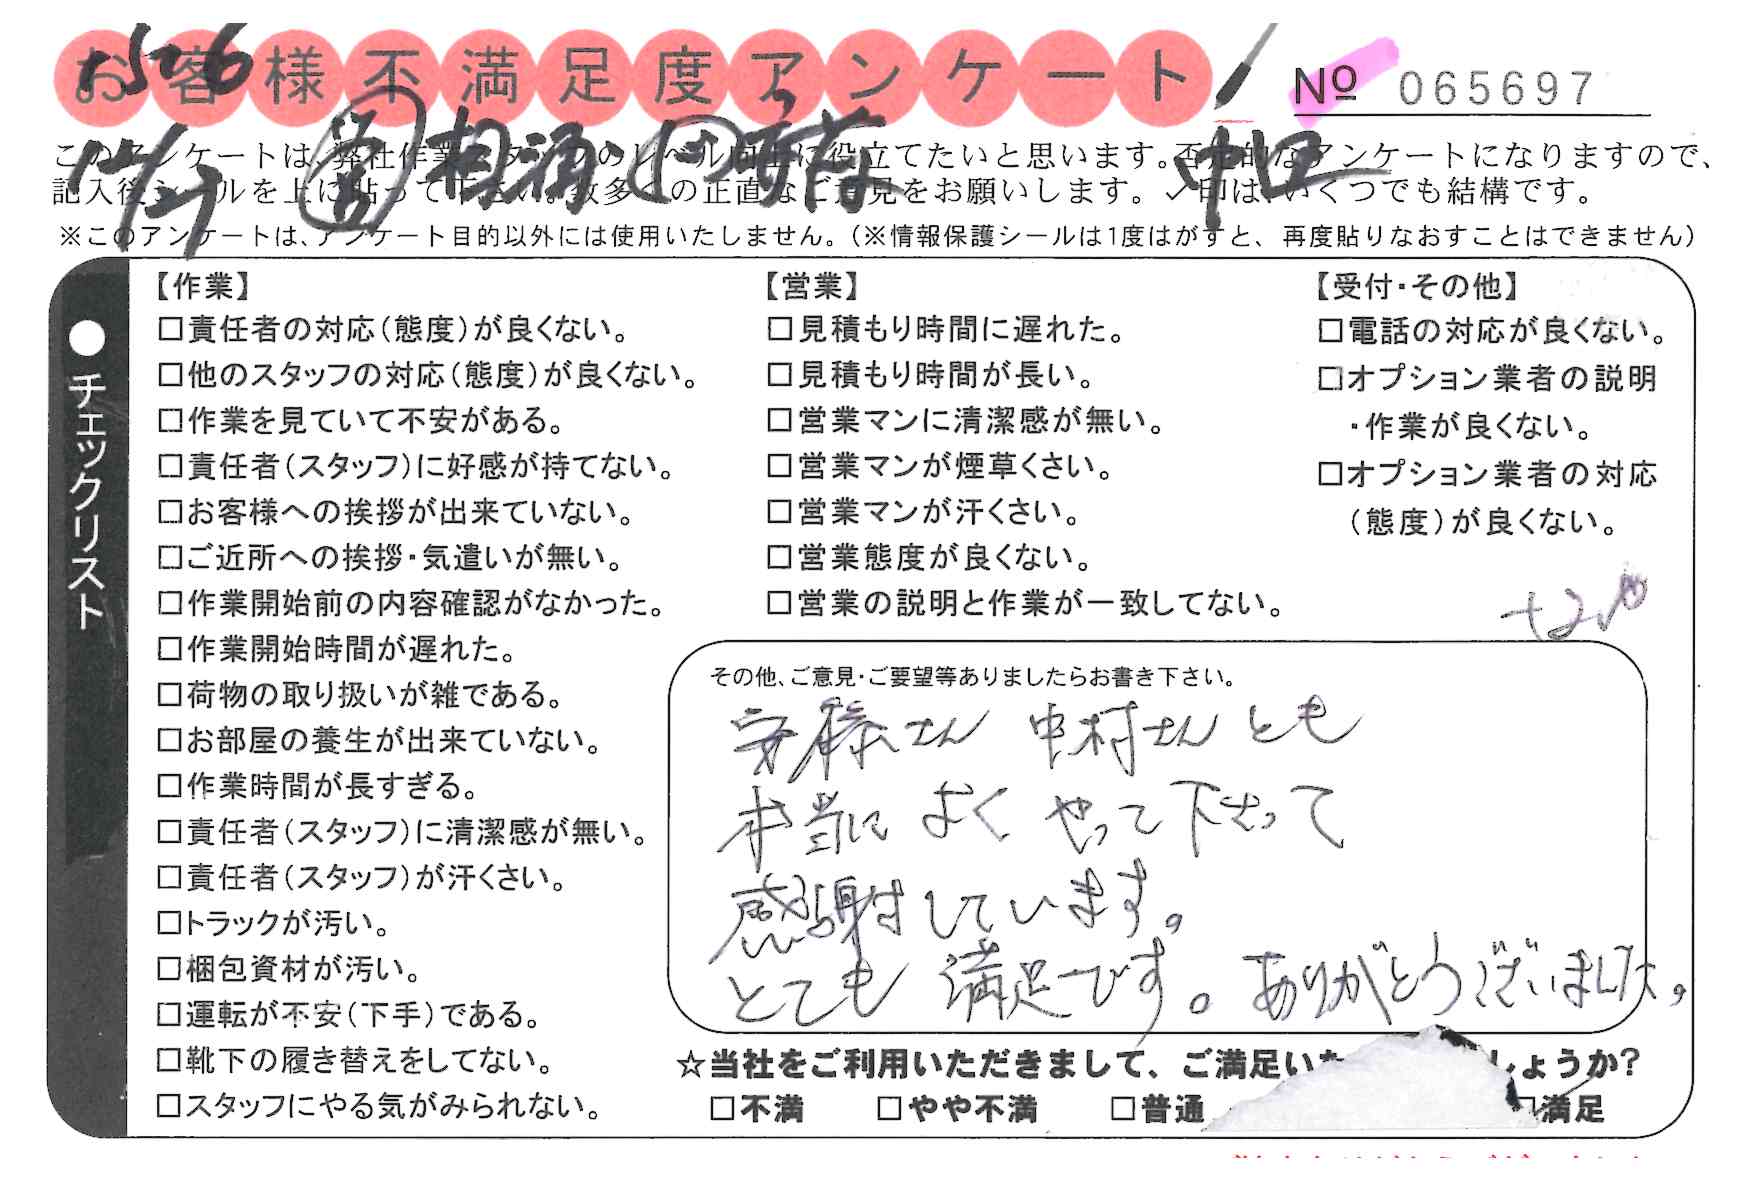 お客様不満足度アンケート
№ 065697
1526
12/7
このアンケートは、弊社作業スタッフのレベル向上に役立てたいと思います。否定的なアンケートになりますので、
記入後シールを上に貼って下さい。数多くの正直なご意見をお願いします。✓印は、いくつでも結構です。
※このアンケートは、アンケート目的以外には使用いたしません。(※情報保護シールは1度はがすと、再度貼りなおすことはできません)
●チェックリスト
【作業】
□責任者の対応(態度)が良くない。
□他のスタッフの対応(態度)が良くない。
□作業を見ていて不安がある。
□責任者(スタッフ)に好感が持てない。
□お客様への挨拶が出来ていない。
□ご近所への挨拶・気遣いが無い。
□作業開始前の内容確認がなかった。
□作業開始時間が遅れた。
□荷物の取り扱いが雑である。
□お部屋の養生が出来ていない。
□作業時間が長すぎる。
□責任者(スタッフ)に清潔感が無い。
□責任者(スタッフ)が汗くさい。
□トラックが汚い。
□梱包資材が汚い。
□運転が不安(下手)である。
□靴下の履き替えをしてない。
□スタッフにやる気がみられない。
【営業】
□見積もり時間に遅れた。
□見積もり時間が長い。
□営業マンに清潔感が無い。
□営業マンが煙草くさい。
□営業マンが汗くさい。
□営業態度が良くない。
□営業の説明と作業が一致してない。
【受付・その他】
□電話の対応が良くない。
□オプション業者の説明
・作業が良くない。
□オプション業者の対応
(態度)が良くない。
その他、ご意見・ご要望等ありましたらお書き下さい。
安藤さん 中村さんとも
本当に よく やって下さって
感謝しています。
とても 満足です。ありがとうございました。
☆当社をご利用いただきまして、ご満足いた しょうか?
□不満 □やや不満 □普通 □満足